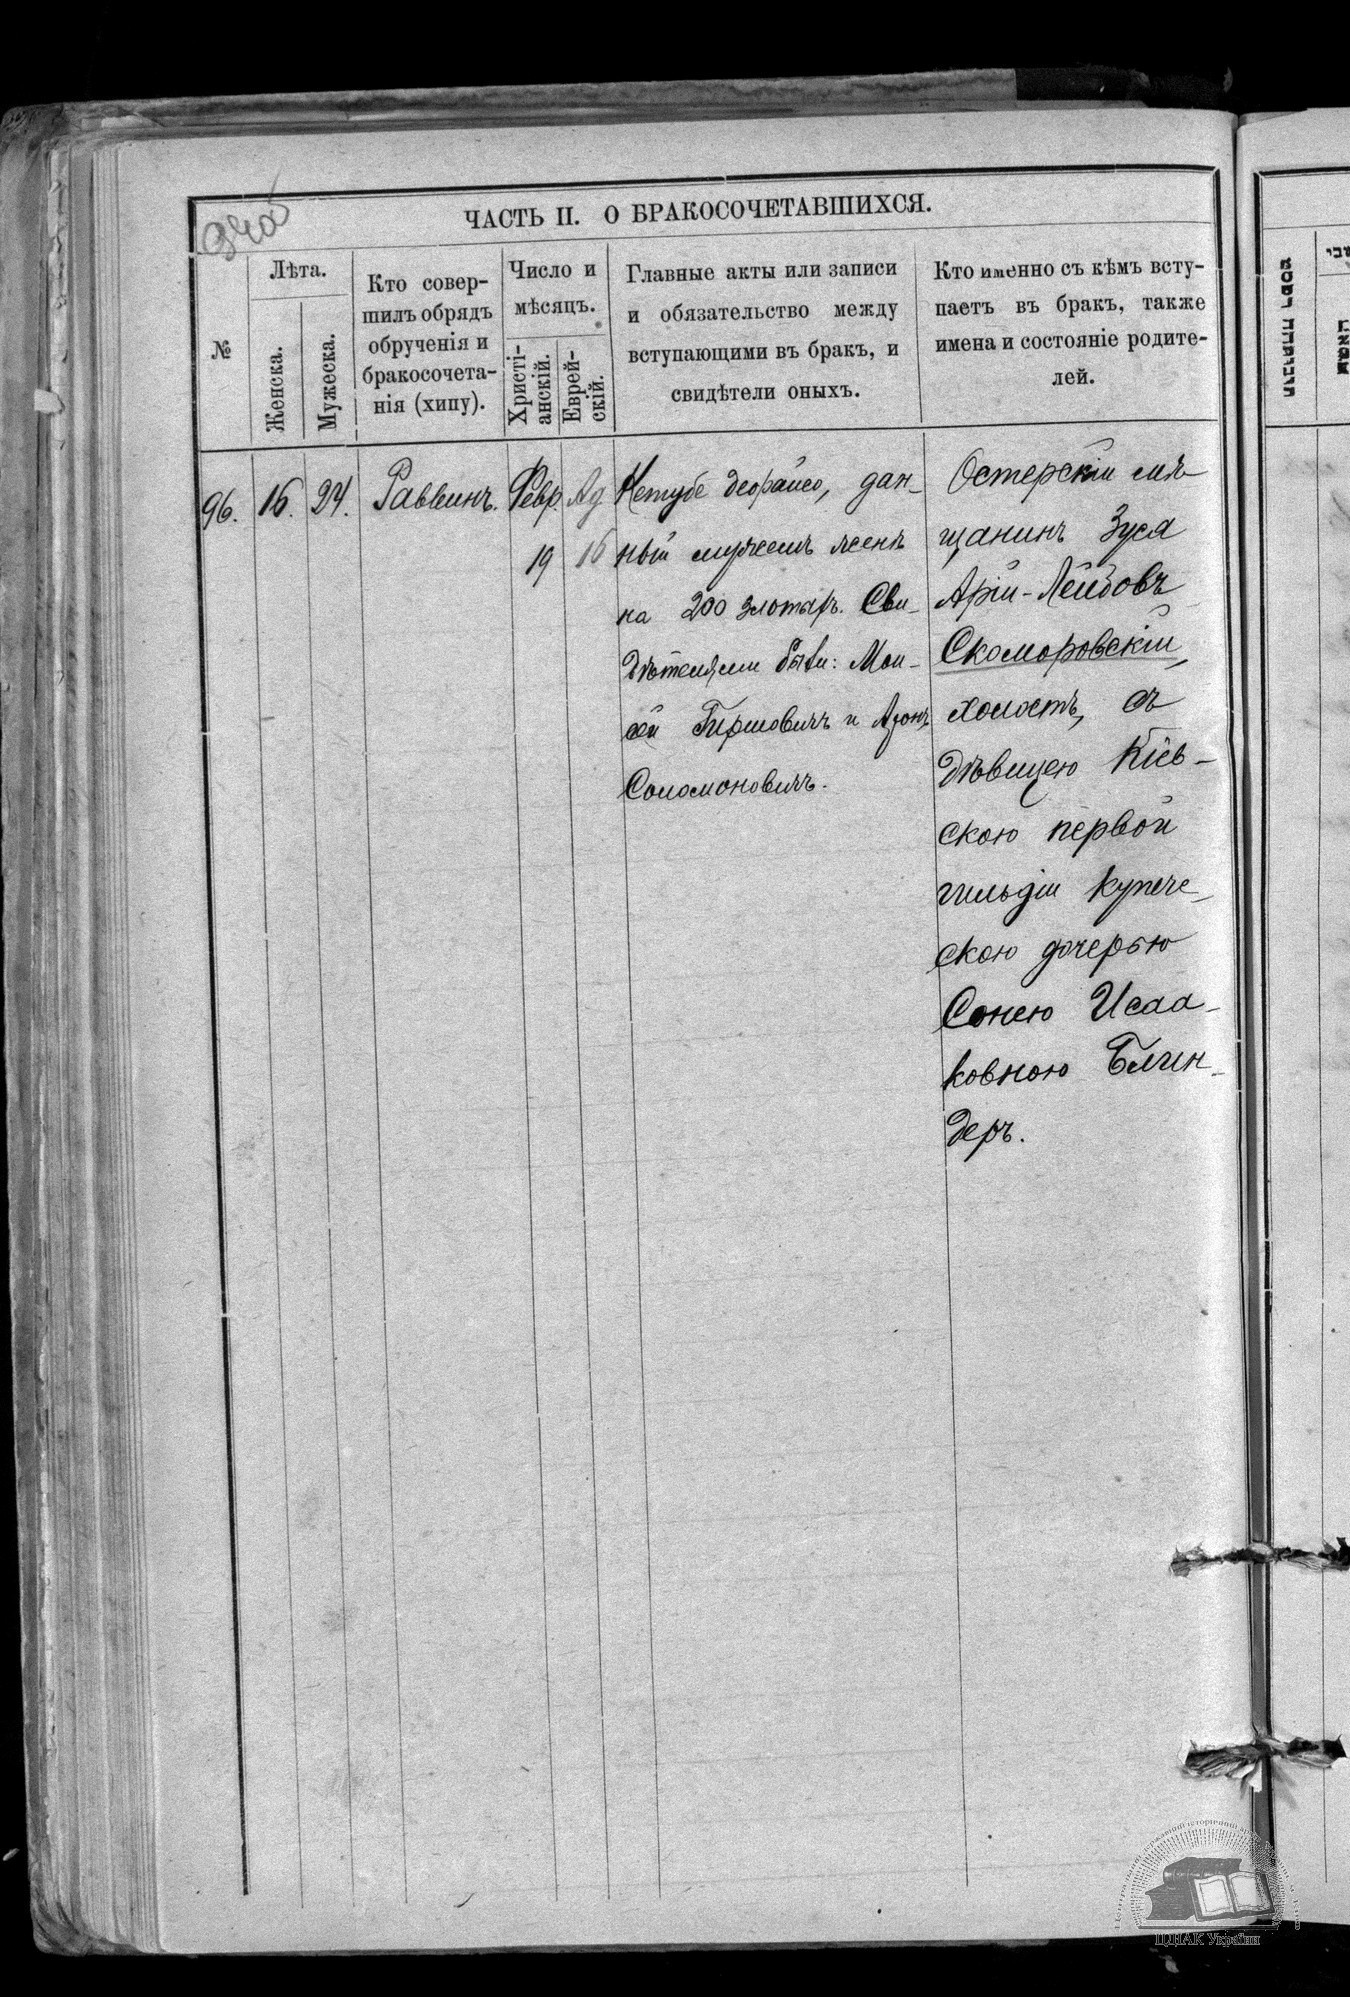 ЧАСТЬ II. О БРАКОСОЧЕТАВШИХСЯ.
№
Лѣта.
Женска.
Мужеска.
Кто совер-
шилъ обрядъ
обрученія и
бракосочета-
нія (хипу).
Число и
мѣсяцъ.
Христі-
анскій.
Еврей-
скій.
Главные акты или записи
и обязательство между
вступающими въ бракъ, и
свидѣтели оныхъ.
Кто именно съ кѣмъ всту-
паетъ въ бракъ, также
имена и состояніе родите-
лей.
96.
16.
24.
Раввинъ.
Февр.
19
Ад
16
Кетубе деорайсо, дан-
ный мужемъ женѣ
на 200 злотыхъ. Сви-
дѣтелями были: Мои-
сей Гиршовичъ и Аронъ
Соломоновичъ.
Остерскій мѣ-
щанинъ Зуся
Арій-Лейбовъ
Скоморовскій,
холостъ, съ
дѣвицею Кіев-
скою первой
гильдіи купече-
скою дочерью
Сонею Исаа-
ковною Блин-
деръ.
ЦДІАК України